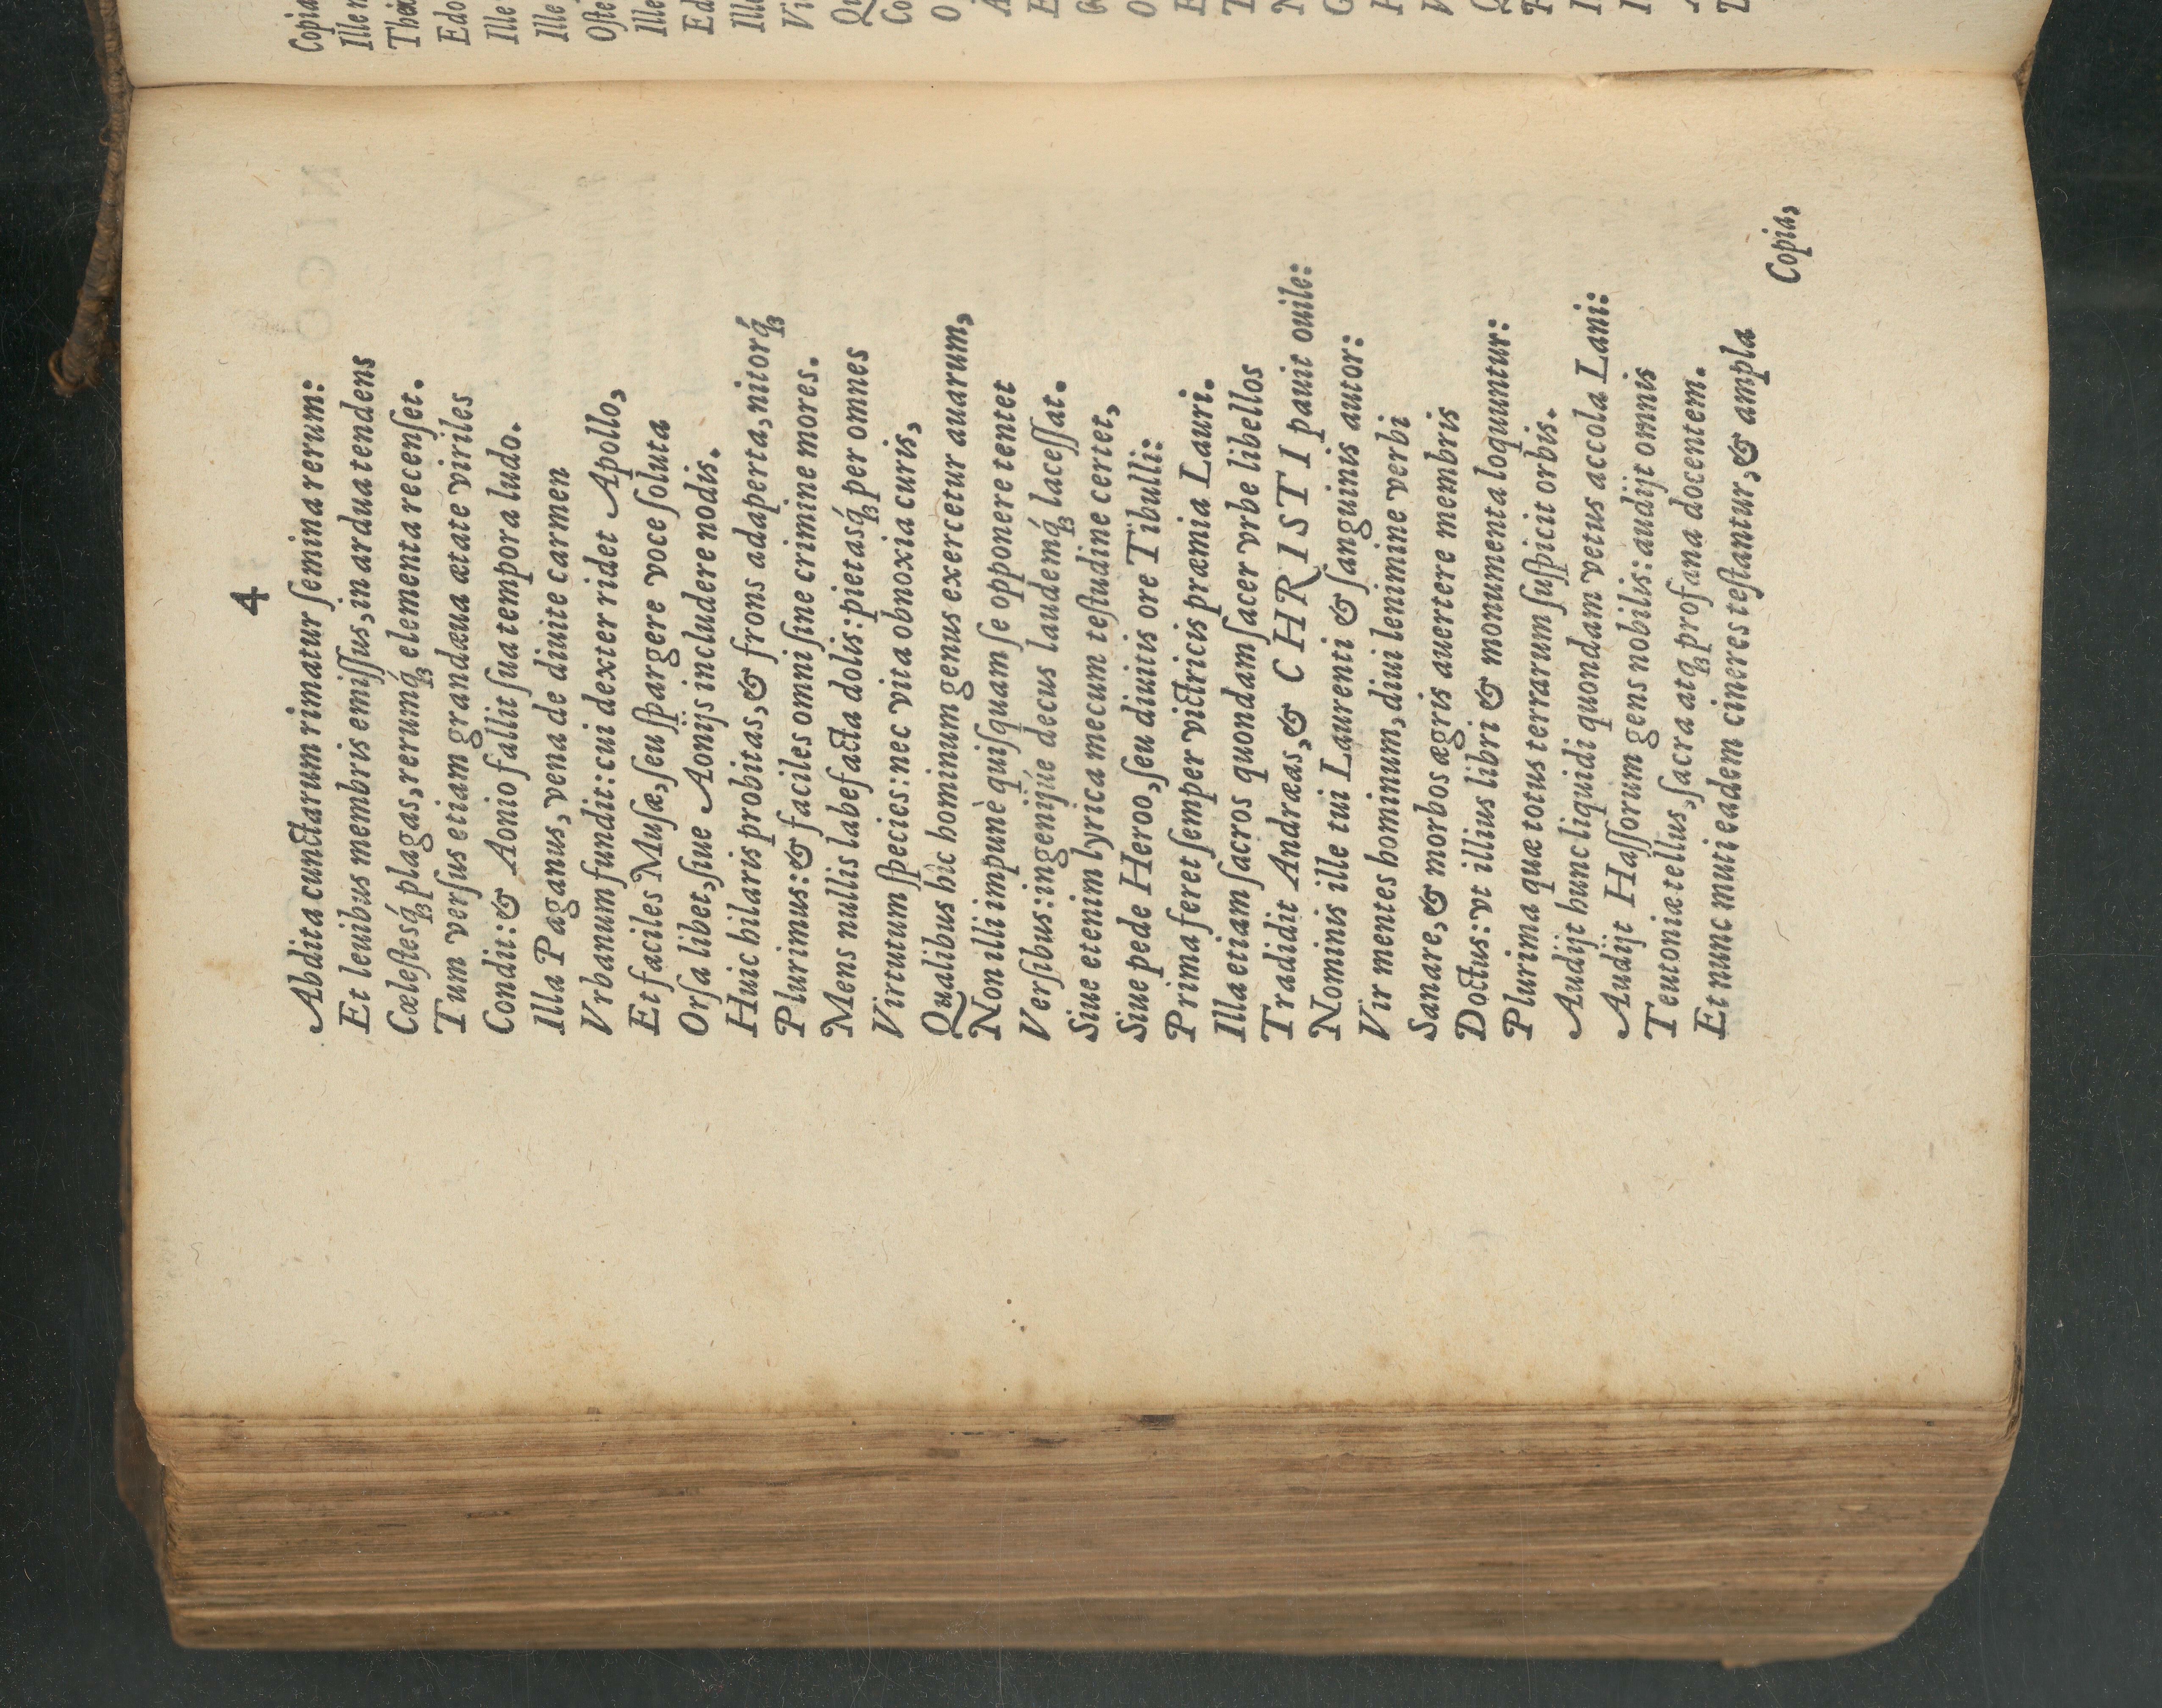 4
Abdita cunctarum rimatur ſemina rerum:
Et leuibus membris emiſſus, in ardua tendens
Cæleſteśq́ꝫ plagas, rerumq́ꝫ elementa recenſet.
Tum verſus etiam grandæua ætate viriles
Condit: & Aonio fallit ſua tempora ludo.
Illa Paganus, vena de diuite carmen
Vrbanum fundit: cui dexter ridet Apollo,
Et faciles Muſæ, ſeu ſpargere voce ſoluta
Orſa libet, ſiue Aonijs includere nodis.
Huic hilaris probitas, & frons adaperta, nitorq́ꝫ
Plurimus: & faciles omni ſine crimine mores.
Mens nullis labefacta dolis: pietasq́ꝫ per omnes
Virtutum ſpecies: nec vita obnoxia curis,
Qualibus hìc hominum genus exercetur auarum,
Non illi impunè quiſquam ſe opponere tentet
Verſibus: ingenijúe decus laudemq́ꝫ laceſſat.
Siue etenim lyrica mecum teſtudine certet,
Siue pede Heroo, ſeu diuitis ore Tibulli:
Prima feret ſemper victricis præmia Lauri.
Illa etiam ſacros quondam ſacer vrbe libellos
Tradidit Andræas, & CHRISTI pauit ouile:
Nominis ille tui Laurenti & ſanguinis autor:
Vir mentes hominum, diui lenimine verbi
Sanare, & morbos ægris auertere membris
Doctus: vt illius libri & monumenta loquuntur:
Plurima quæ totus terrarum ſuſpicit orbis.
Audijt hunc liquidi quondam vetus accola Lani:
Audijt Haſſorum gens nobilis: audijt omnis
Teutoniæ tellus, ſacra atqꝫ profana docentem.
Et nunc muti eadem cineres teſtantur, & ampla
Copia,
Copia
Ille
Edo
Ille
Ille
Oſte
Ille